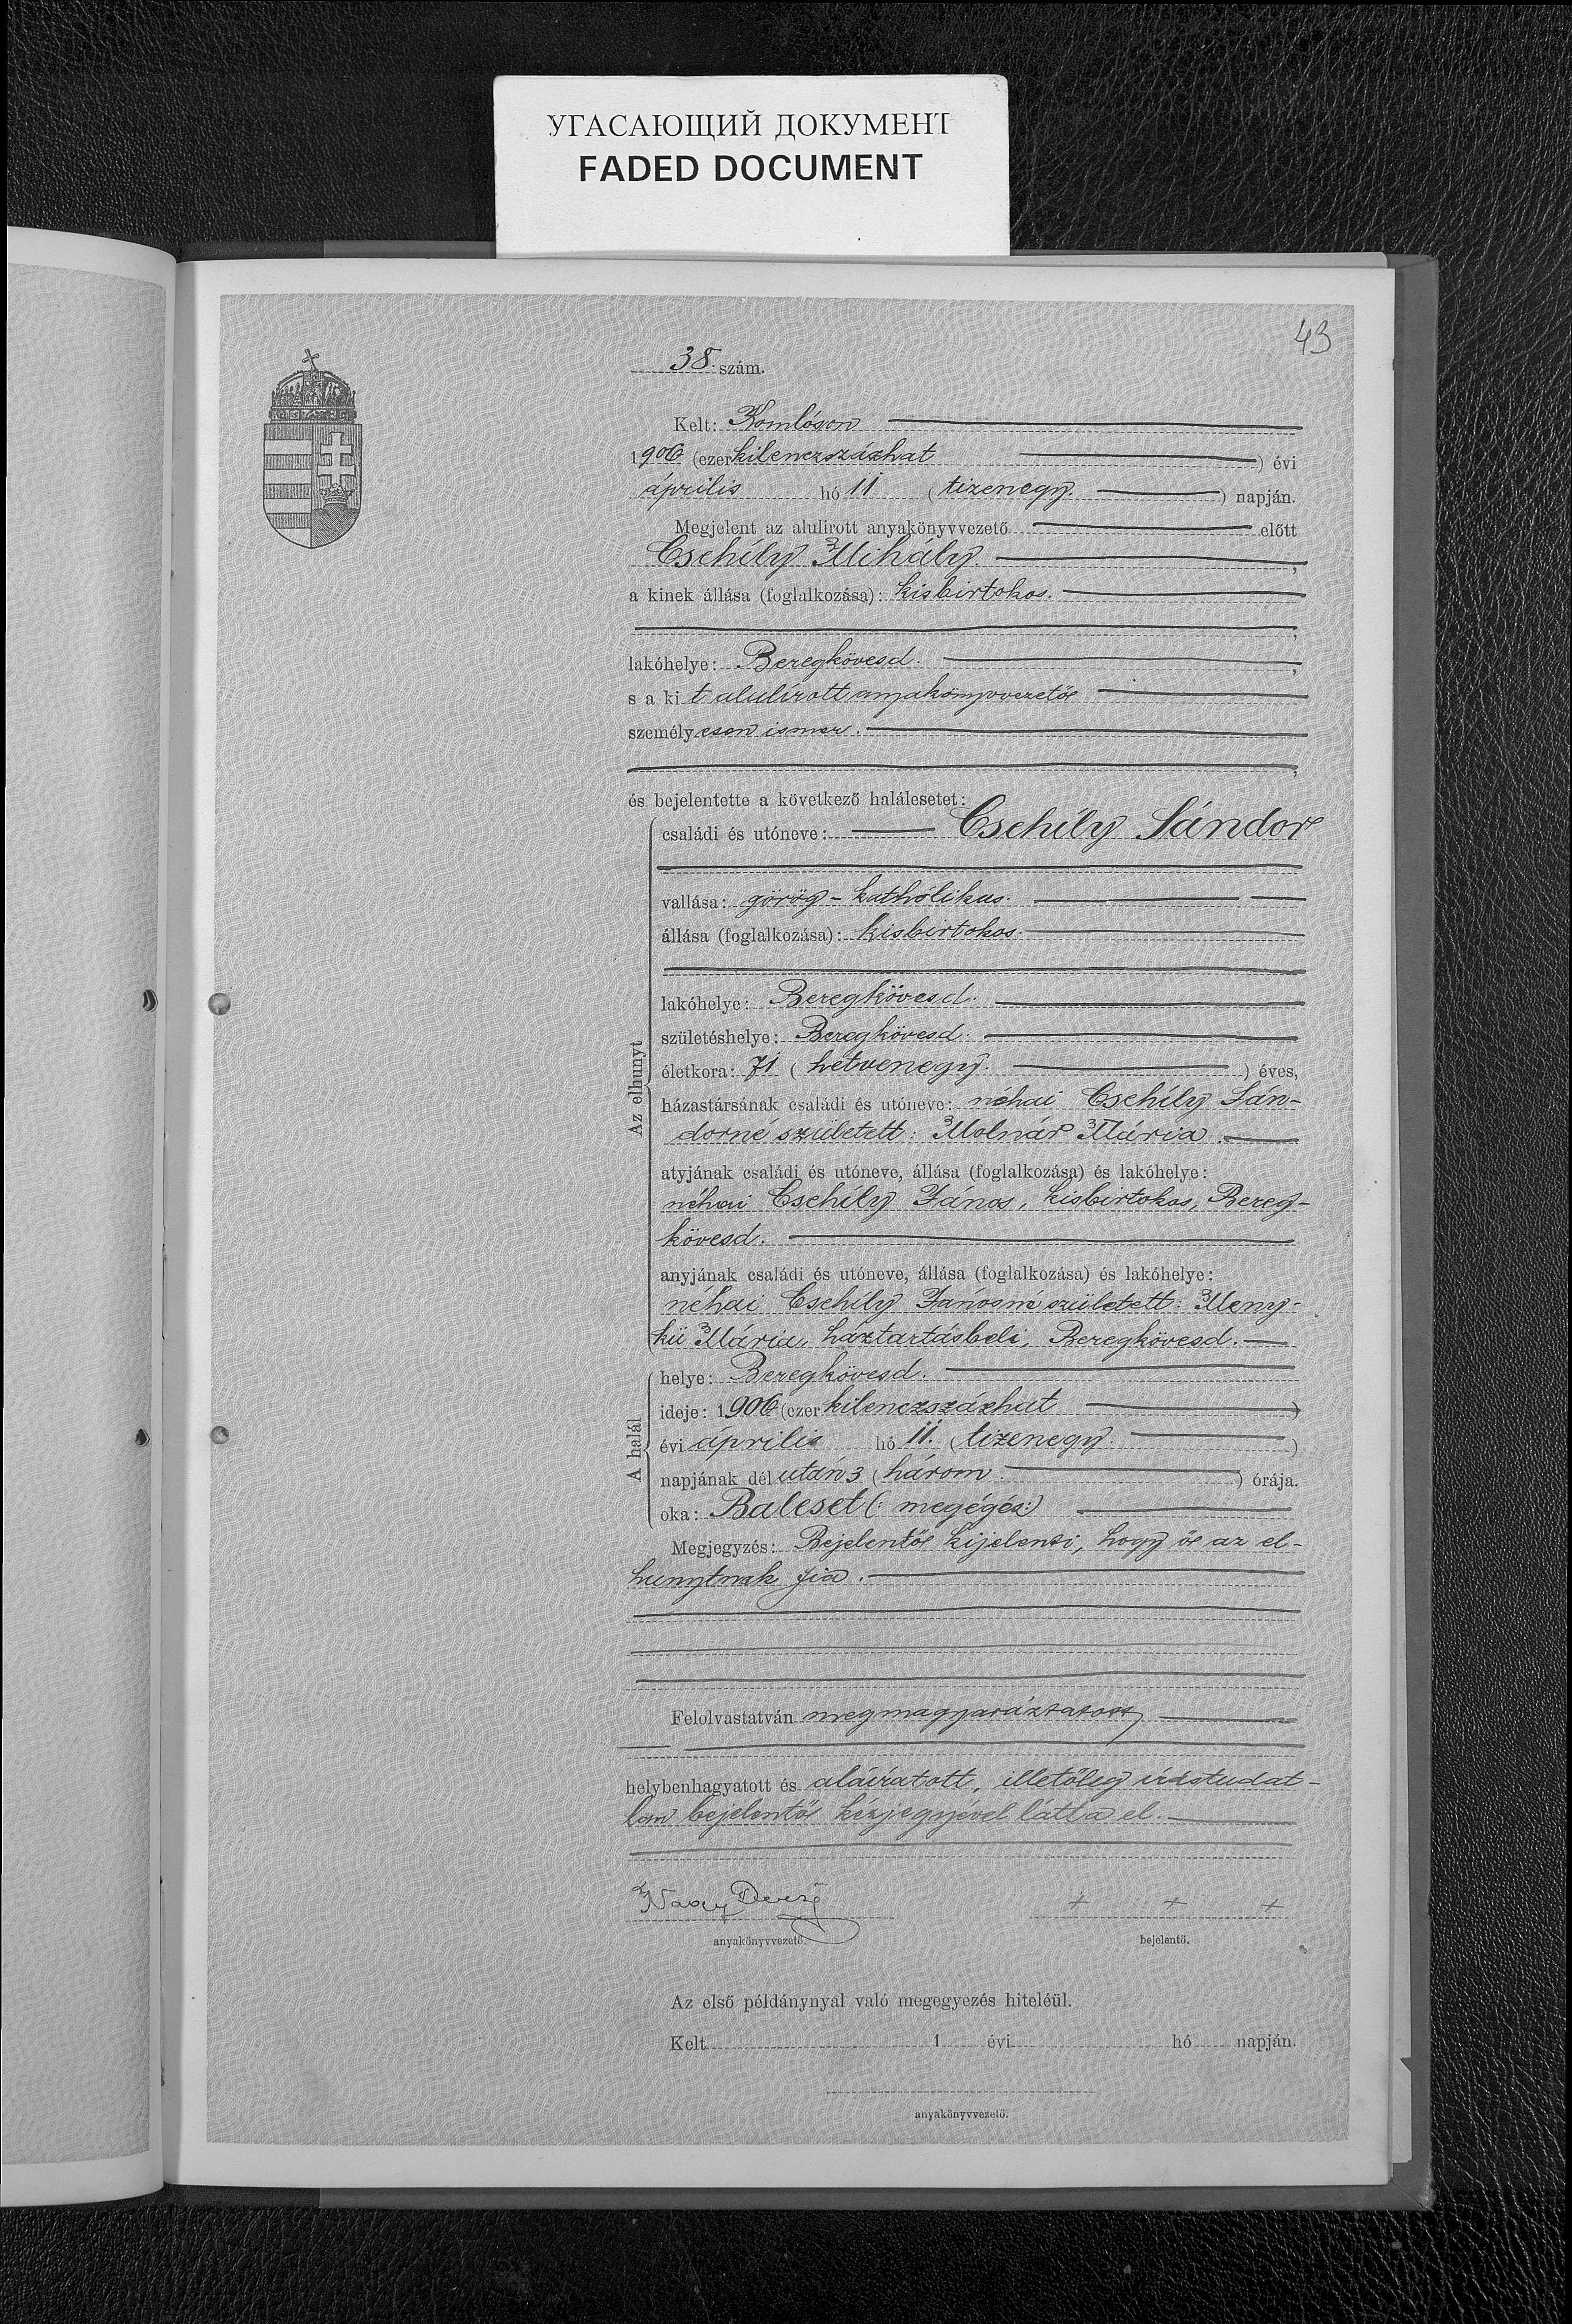 УГАСАЮЩИЙ ДОКУМЕНТ
FADED DOCUMENT
43
38. szám.
Kelt: Komlóson
1906 (ezer kilenczszázhat ) évi
április hó 11 (tizenegy.) napján.
Megjelent az alulírott anyakönyvvezető előtt
Csehily Mihály.
a kinek állása (foglalkozása): kisbirtokos.
lakóhelye: Beregkövesd.
s a kit alulírott anyakönyvvezető
személyesen ismer.
és bejelentette a következő halálesetet:
Az elhunyt
családi és utóneve: Csehily Sándor
vallása: görög-kathólikus.
állása (foglalkozása): kisbirtokos.
lakóhelye: Beregkövesd.
születéshelye: Beregkövesd.
életkora: 71 (hetvenegy.) éves,
házastársának családi és utóneve: néhai Csehily Sán-
dorné született: Molnár Mária.
atyjának családi és utóneve, állása (foglalkozása) és lakóhelye:
néhai Csehily János, kisbirtokos, Bereg-
kövesd.
anyjának családi és utóneve, állása (foglalkozása) és lakóhelye:
néhai Csehily Jánosné született: Meny-
kü Mária, háztartásbeli, Beregkövesd.
A halál
helye: Beregkövesd.
ideje: 1906 (ezer kilenczszázhat )
évi április hó 11. (tizenegy.)
napjának dél után 3 (három.) órája.
oka: Baleset (: megégés:)
Megjegyzés: Bejelentő kijelenti, hogy ő az el-
hunytnak fia.
Felolvastatván megmagyaráztatott,
helybenhagyatott és aláíratott, illetőleg írástudat-
lan bejelentő kézjegyével látta el.
Nagy Dezső + + +
anyakönyvvezető. bejelentő.
Az első példánynyal való megegyezés hiteléül.
Kelt 1 évi hó napján.
anyakönyvvezető.